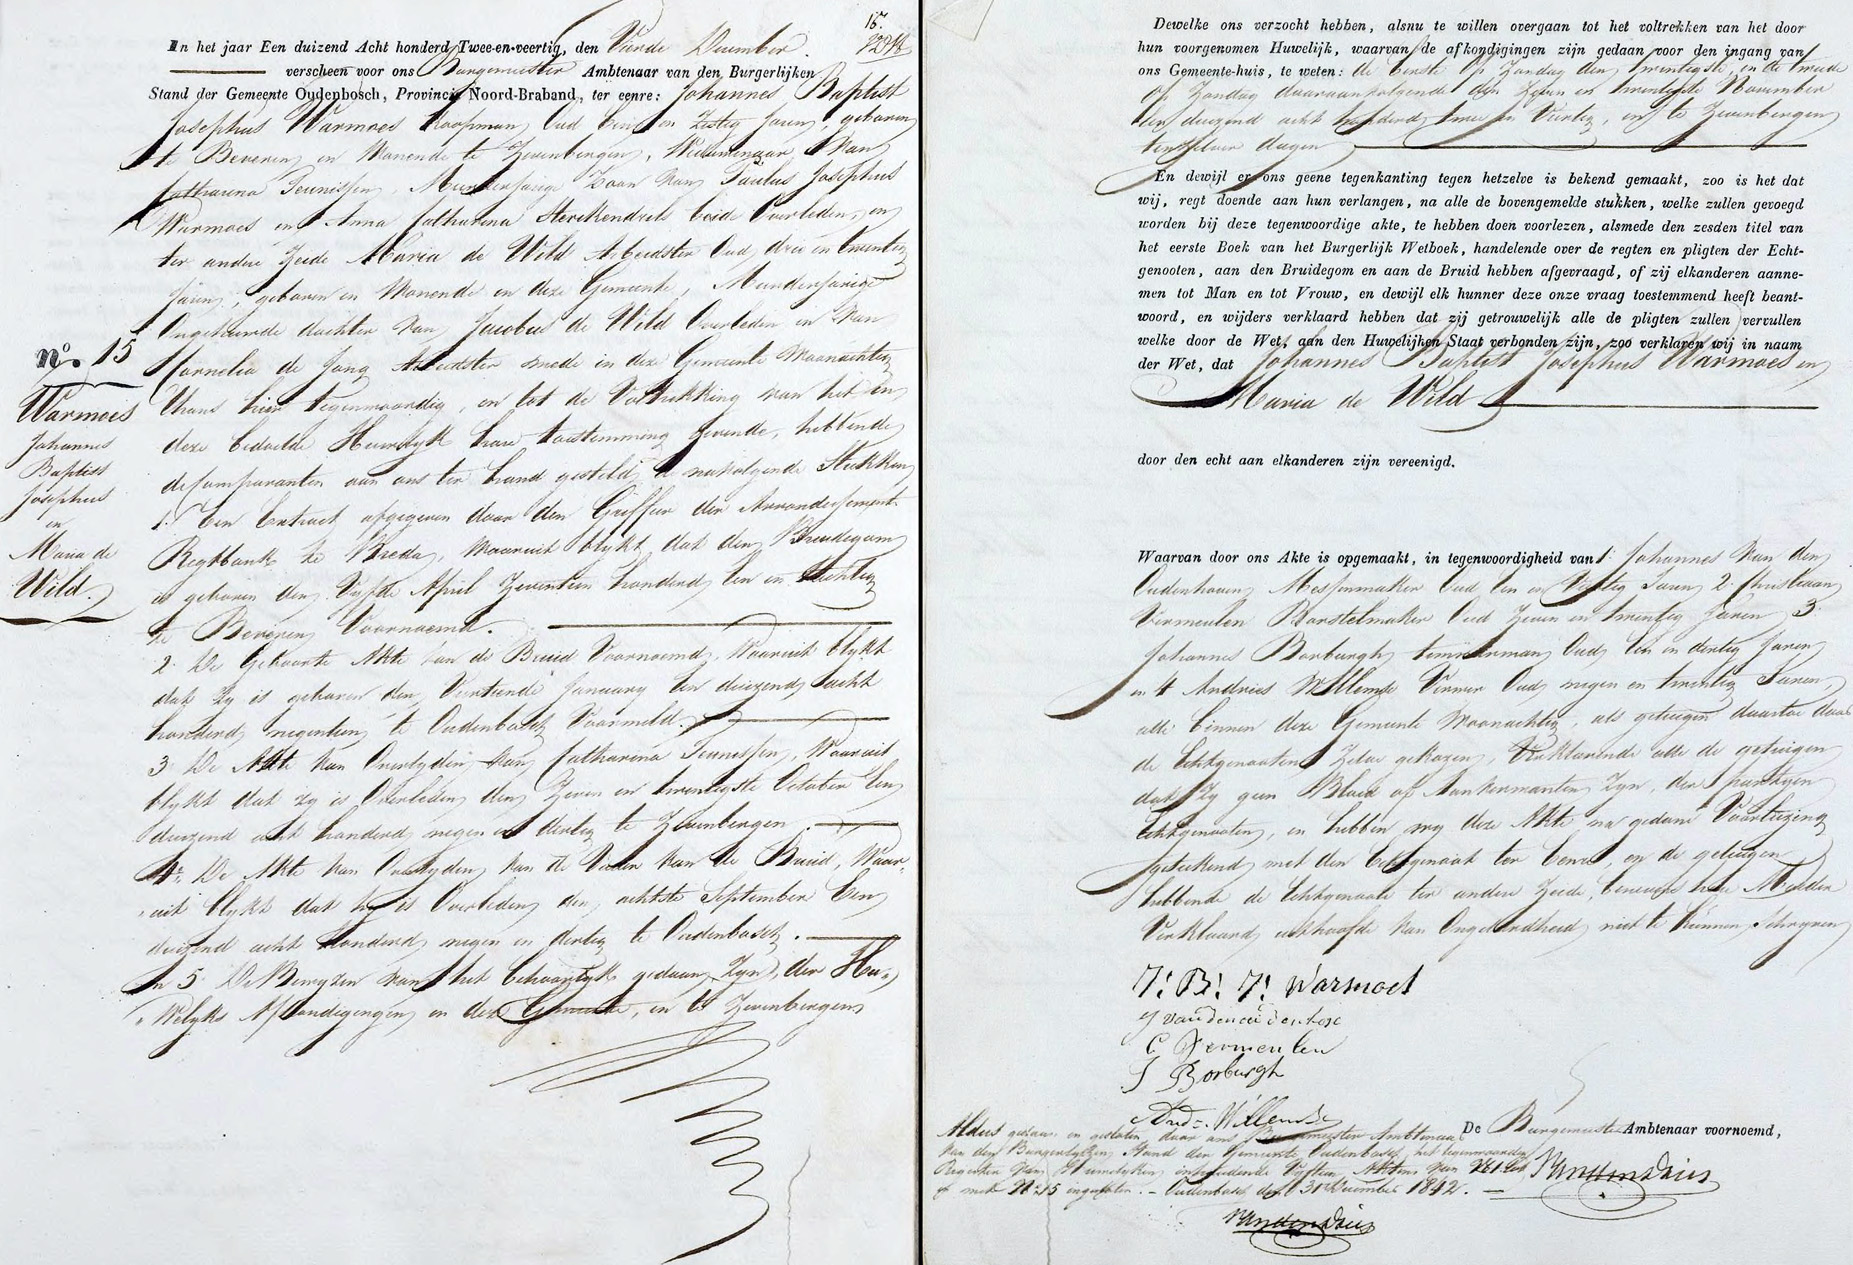 16.
In het jaar Een duizend Acht honderd Twee-en-veertig, den Vierde December.
verscheen voor ons Burgemeester Ambtenaar van den Burgerlijken
Stand der Gemeente Oudenbosch, Provincie Noord-Braband, ter eenre: Johannes Baptist
Josephus Warmoes Koopman Oud drie en Zestig Jaren, geboren
te Beveren en Wonende te Zevenbergen, Weduwenaar van
Catharina Teunissen, Meerderjarige Zoon van Paulus Josephus
Warmoes en Anna Catharina Sterkendries beide Overleden, en
ter andere Zeide Maria de Wild Arbeidster Oud drie en twintig
Jaren, geboren en Wonende in deze Gemeente, Meerderjarige
Ongehuwde dochter van Jacobus de Wild Overleden en van
Cornelia de Jong Arbeidster mede in deze Gemeente Woonachtig
thans hier tegenwoordig, en tot de Voltrekking van het in
deze bedoelde Huwelyk hare toestemming gevende, hebbende
de Comparanten aan ons ter hand gesteld de navolgende Stukken
1. Een Extract afgegeven door den Griffier der Arrondissement
Regtbank te Breda, waaruit blykt dat den Bruidegom
is geboren den Vyfde April Zeventien honderd een en tachtig
te Beveren Voornoemd.
2. De Geboorte Akte van de Bruid Voornoemd, Waaruit blykt
dat Zy is geboren den Veertiende January Een duizend acht
honderd negentien te Oudenbosch Voormeld.
3. De Akte van Overlyden van Catharina Teunissen, Waaruit
blykt dat zy is Overleden den Zeven en twentigste October Een
duizend acht honderd negen en dertig te Zevenbergen.
4. De Akte van Overlyden van de Vader van de Bruid, Waar-
uit blykt dat hy is Overleden den achtste September Een
duizend acht honderd negen en dertig te Oudenbosch.
En 5. De Bewyzen van het behoorlyk gedaan zyn der Hu-
Welyks Afkondigingen in deze Gemeente, en te Zevenbergen
No. 15
Warmoes
Johannes
Baptist
Josephus
en
Maria de
Wild.
Dewelke ons verzocht hebben, alsnu te willen overgaan tot het voltrekken van het door
hun voorgenomen Huwelijk, waarvan de afkondigingen zijn gedaan voor den ingang van
ons Gemeente-huis, te weten: de Eerste Op Zondag den twintigste, en de tweede
Op Zondag daaraanvolgende den Zeven en twintigste November
Een duizend acht honderd twee en Veertig, en te Zevenbergen
ten zelver dagen
En dewijl er ons geene tegenkanting tegen hetzelve is bekend gemaakt, zoo is het dat
wij, regt doende aan hun verlangen, na alle de bovengemelde stukken, welke zullen gevoegd
worden bij deze tegenwoordige akte, te hebben doen voorlezen, alsmede den zesden titel van
het eerste Boek van het Burgerlijk Wetboek, handelende over de regten en pligten der Echt-
genooten, aan den Bruidegom en aan de Bruid hebben afgevraagd, of zij elkanderen aanne-
men tot Man en tot Vrouw, en dewijl elk hunner deze onze vraag toestemmend heeft beant-
woord, en wijders verklaard hebben dat zij getrouwelijk alle de pligten zullen vervullen
welke door de Wet, aan den Huwelijken Staat verbonden zijn, zoo verklaren wij in naam
der Wet, dat Johannes Baptist Josephus Warmoes en
Maria de Wild
door den echt aan elkanderen zijn vereenigd.
Waarvan door ons Akte is opgemaakt, in tegenwoordigheid van 1. Johannes van den
Oudenhoven Messenmaker Oud Een en Vyftig Jaren 2. Christiaan
Vermeulen Borstelmaker Oud Zeven en twentig Jaren 3.
Johannes Borburgh timmerman Oud Een en dertig Jaren
en 4 Andries Willemse Verwer Oud negen en twintig Jaren,
alle binnen deze Gemeente Woonachtig als getuigen daartoe door
de Echtgenooten Zelve gekozen, Verklarende alle de getuigen
dat Zy geen Bloed of Aanverwanten Zyn, der partyen
Echtgenooten, en hebben wy deze Akte na gedane Voorlezing
geteekend met den Echtgenoot ter Eenre, en de getuigen
hebbende de Echtgenoote ter andere Zeide, benevens hare Moeder
Verklaard uithoofde van Ongeleerdheid niet te kunnen Schryven
J: B: J: Warmoes
C. Vermeulen
J Borburgh
And:s Willemse
De Burgemeester Ambtenaar voornoemd,
Aldus gedaan en gesloten door ons Burgemeester Ambtenaar
van den Burgerlyken Stand der Gemeente Oudenbosch, het tegenwoordig
Register van Huwelyken inhoudende Vyftien Akten van No. 1 tot
en met No. 15 ingesloten. - Oudenbosch den 31 December 1842.